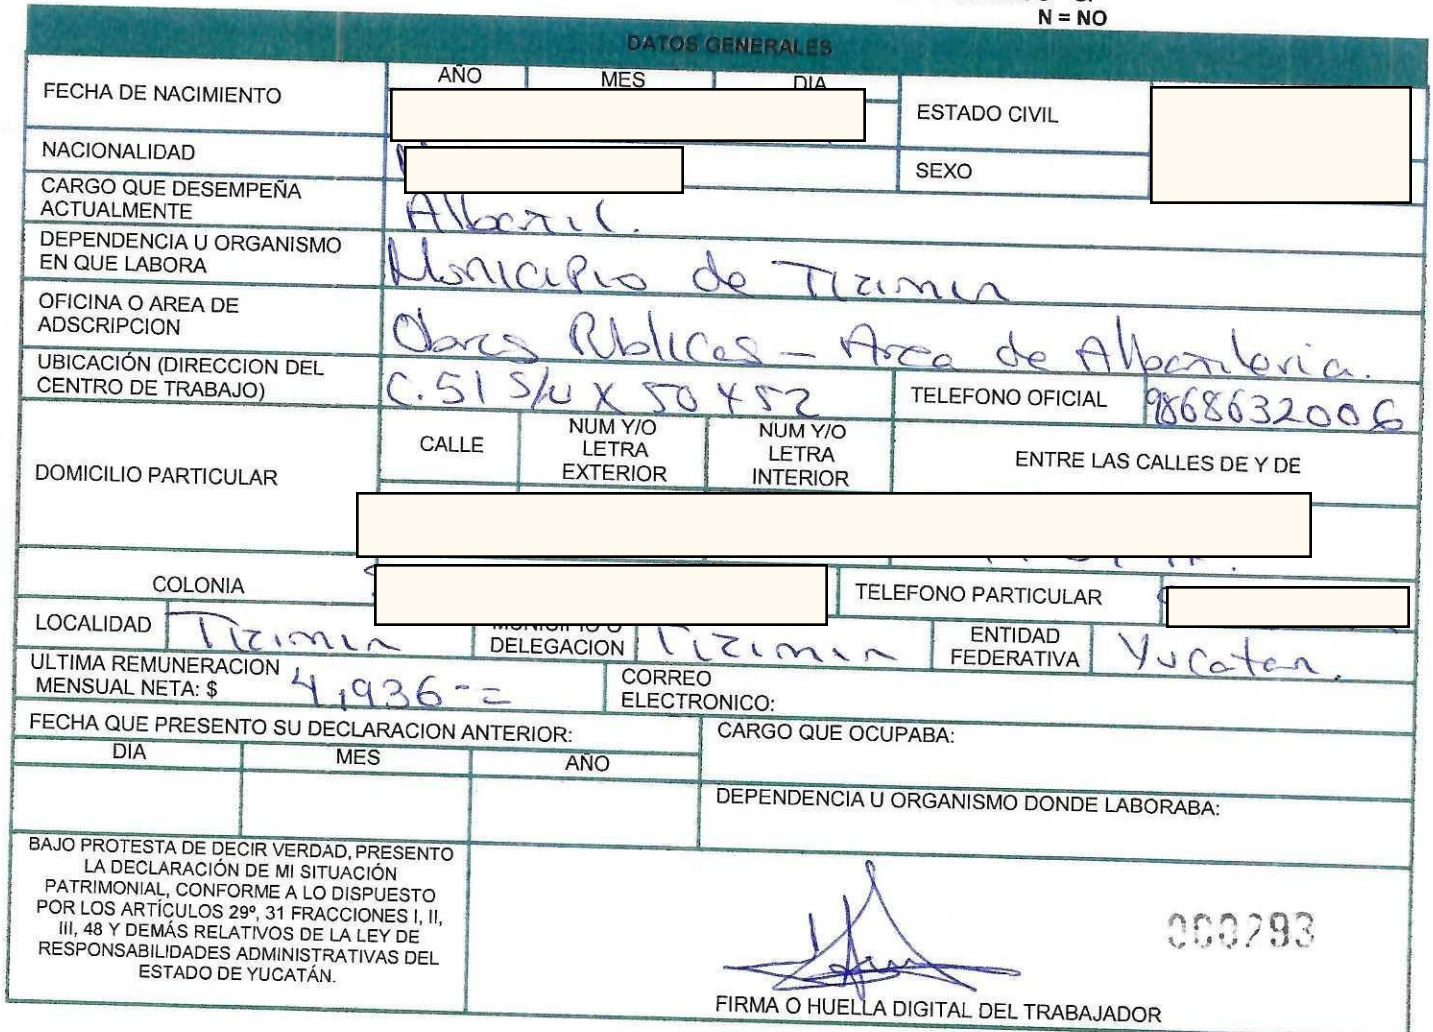 N = NO
DATOS GENERALES
FECHA DE NACIMIENTO
AÑO MES DIA
ESTADO CIVIL
NACIONALIDAD
SEXO
CARGO QUE DESEMPEÑA
ACTUALMENTE
Albañil.
DEPENDENCIA U ORGANISMO
EN QUE LABORA
Municipio de Tizimin
OFICINA O AREA DE
ADSCRIPCION
Obras Públicas - Area de Albañileria.
UBICACIÓN (DIRECCION DEL
CENTRO DE TRABAJO)
C. 51 S/N X 50 Y 52
TELEFONO OFICIAL 9868632006
DOMICILIO PARTICULAR
CALLE
NUM Y/O
LETRA
EXTERIOR
NUM Y/O
LETRA
INTERIOR
ENTRE LAS CALLES DE Y DE
COLONIA
TELEFONO PARTICULAR
LOCALIDAD Tizimin
MUNICIPIO O
DELEGACION Tizimin
ENTIDAD
FEDERATIVA Yucatan.
ULTIMA REMUNERACION
MENSUAL NETA: $ 4,936-=
CORREO
ELECTRONICO:
FECHA QUE PRESENTO SU DECLARACION ANTERIOR:
DIA MES AÑO
CARGO QUE OCUPABA:
DEPENDENCIA U ORGANISMO DONDE LABORABA:
BAJO PROTESTA DE DECIR VERDAD, PRESENTO
LA DECLARACIÓN DE MI SITUACIÓN
PATRIMONIAL, CONFORME A LO DISPUESTO
POR LOS ARTÍCULOS 29º, 31 FRACCIONES I, II,
III, 48 Y DEMÁS RELATIVOS DE LA LEY DE
RESPONSABILIDADES ADMINISTRATIVAS DEL
ESTADO DE YUCATÁN.
000293
FIRMA O HUELLA DIGITAL DEL TRABAJADOR